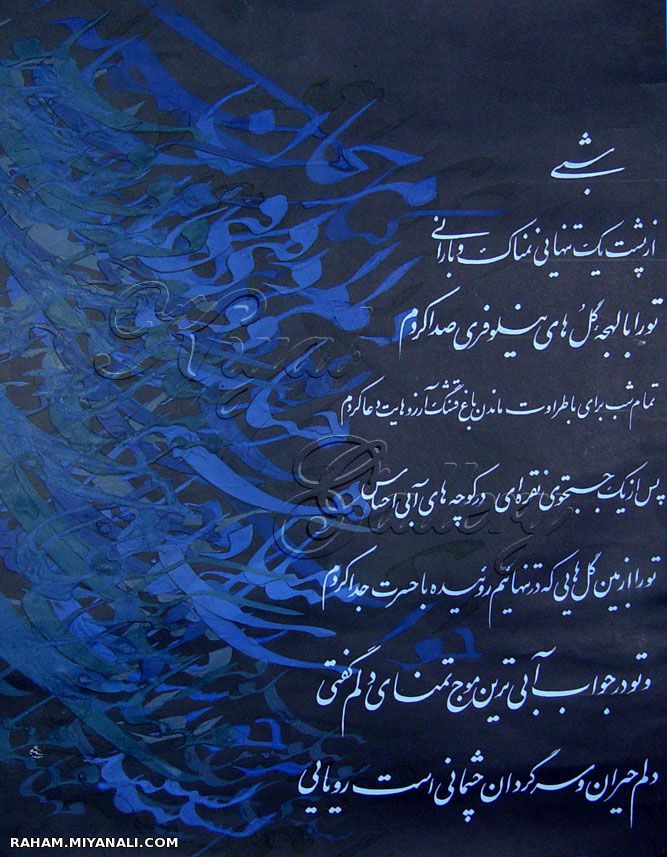 شبی
از پشت یک تنهایی نمناک و بارانی
تو را با لهجهٔ گل های نیلوفری صدا کردم
تمام شب برای با طراوت ماندن باغ قشنگ آرزوهایت دعا کردم
پس از یک جستجوی نقره ای در کوچه های آبی احساس
تو را از بین گل هایی که در تنهائیم روئیده با حسرت جدا کردم
و تو در جواب آبی ترین موج تمنای دلم گفتی
دلم حیران و سرگردان چشمانی است رویایی
Gallery
RAHAM.MIYANALI.COM